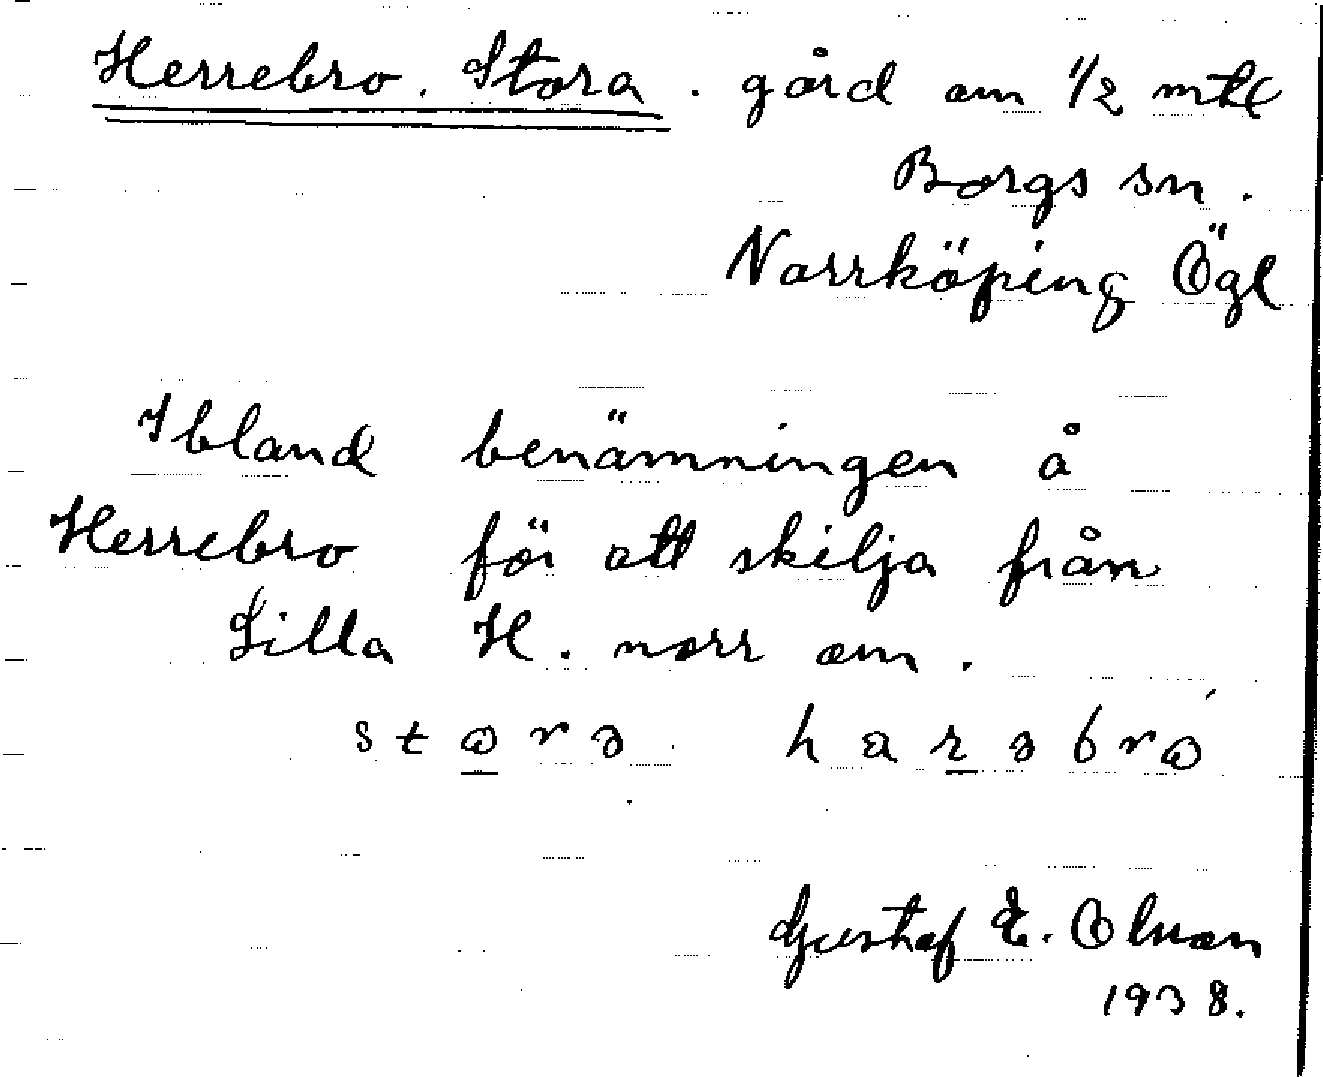 Herrebro. Stora. gård om 1/2 mtl
Borgs sn.
Norrköping Ögl
Ibland benämningen å
Herrebro för att skilja från
Lilla H. norr om.
Gustaf E. Olsson
1938.